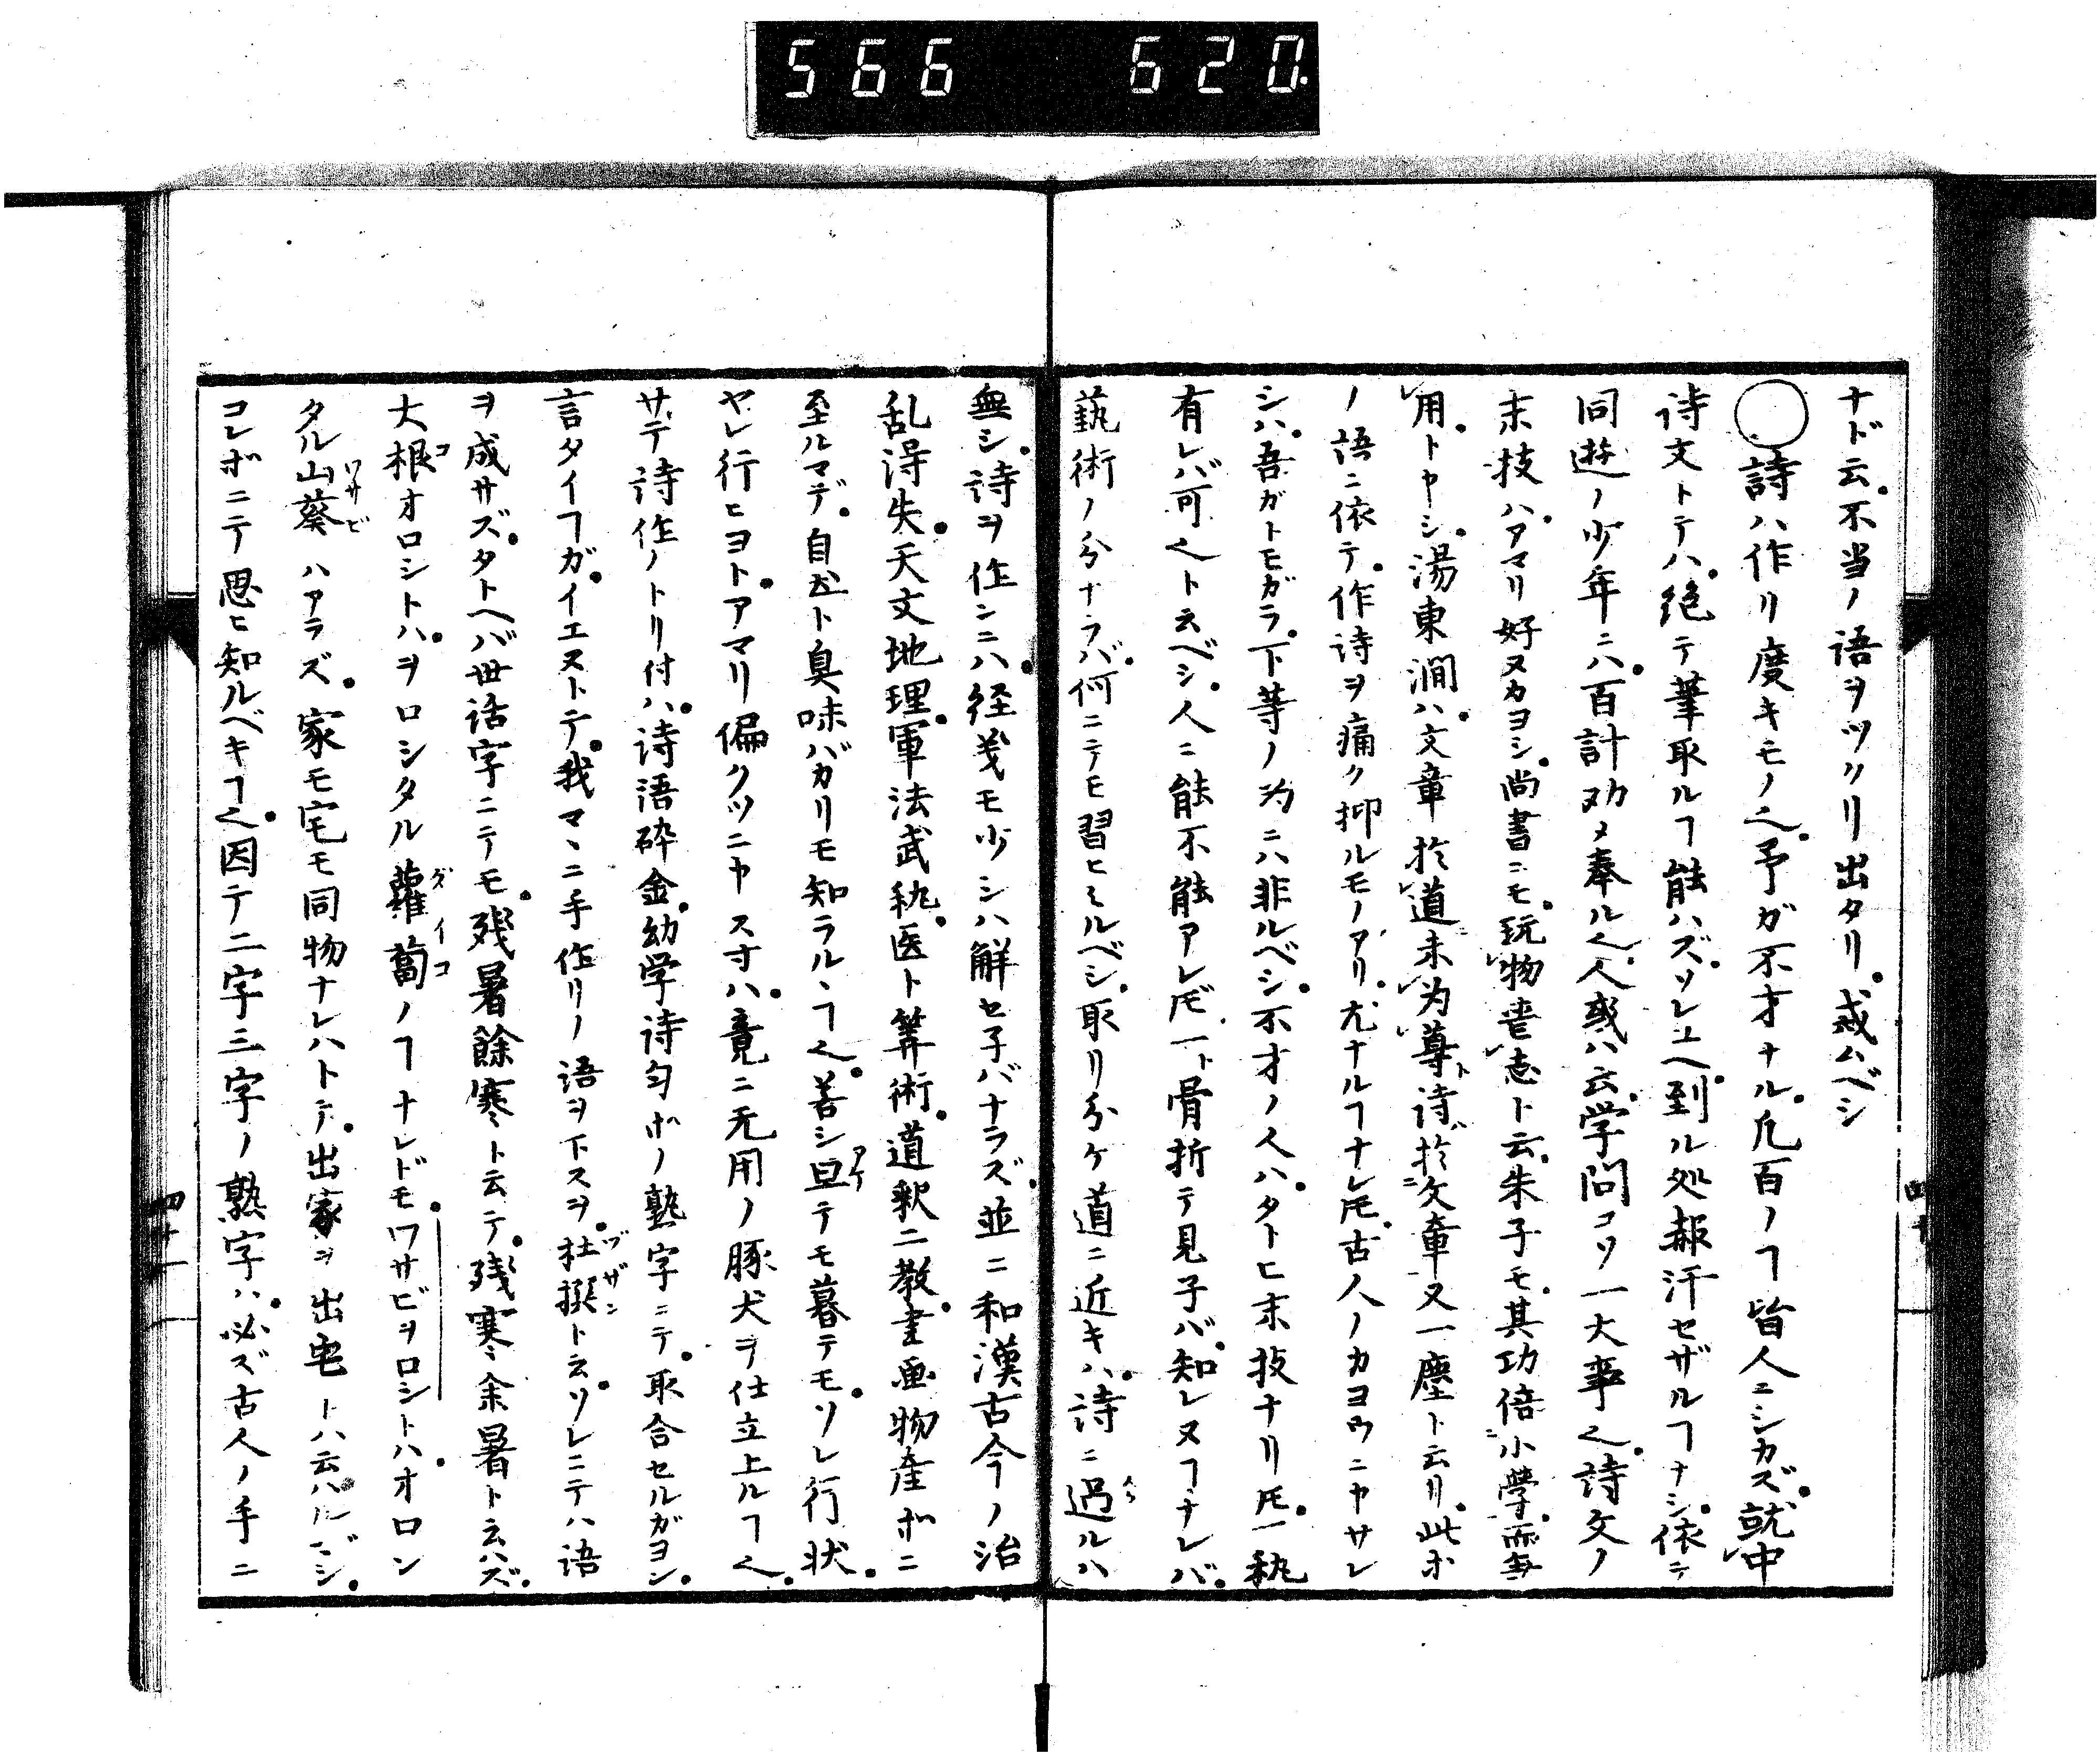 566 620.
ナド云。不当ノ語ヲツクリ出タリ。戒ムベシ
○詩ハ作リ度キモノ也。予ガ不才ナル。凡百ノヿ皆人ニシカズ。就中
詩文トテハ。絶テ筆取ルヿ能ハズ。ソレユヘ。到ル処赧汗セザルヿナシ。依テ
同遊ノ少年ニハ。百計勧メ奉ル也。人或ハ云。学問コソ一大事也。詩文ノ
末技ハ。アマリ好ヌカヨシ。尚書ニモ。玩物喪志ト云。朱子モ。其功倍小学而無
用。トヤシ。湯東澗ハ。文章於道未為尊。詩於文章又一塵ト云リ。此ホ
ノ語ニ依テ。作詩ヲ痛ク抑ルモノアリ。尤ナルヿナレ𪜈。古人ノカヨウニヤサレ
シハ。吾ガトモガラ。下等ノ為ニハ非ルベシ。不才ノ人ハ。タトヒ末技ナリ𪜈。一執
有レバ可也ト云ベシ。人ニ能不能アレ𪜈。一ト骨折テ見子バ。知レヌヿナレバ。
藝術ノ分ナラバ。何ニテモ習ヒミルベシ。取リ分ケ道ニ近キハ。詩ニ過ルハ
無シ。詩ヲ作ンニハ。経義モ少シハ解セ子バナラズ。並ニ和漢古今ノ治
乱得失。天文地理。軍法武執。医ト算術。道釈二教。書画物産ホニ
至ルマデ。自然ト臭味バカリモ知ラルヽヿ也。若シ旦テモ暮テモ。ソレ行状。
ヤレ行ヒヨト。アマリ偏クツニヤス寸ハ。竟ニ无用ノ豚犬ヲ仕立上ルヿ也。
サテ詩作ノトリ付ハ。詩語砕金。幼学詩匀ホノ熟字ニテ。取合セルガヨシ。
言タイヿガ。イエヌトテ。我マヽニ手作リノ語ヲ下スヲ。杜撰ト云。ソレニテハ語
ヲ成サズ。タトヘバ世話字ニテモ。残暑餘寒ト云テ。残寒余暑ト云ハズ。
大根オロシトハ。ヲロシタル蘿蔔ノヿナレドモ。ワサビヲロシトハ。オロシ
タル山葵ハアラズ。家モ宅モ同物ナレハトテ。出家ヲ出宅トハ云ハルマジ。
コレホニテ思ヒ知ルベキヿ也。因テ二字三字ノ熟字ハ。必ズ古人ノ手ニ